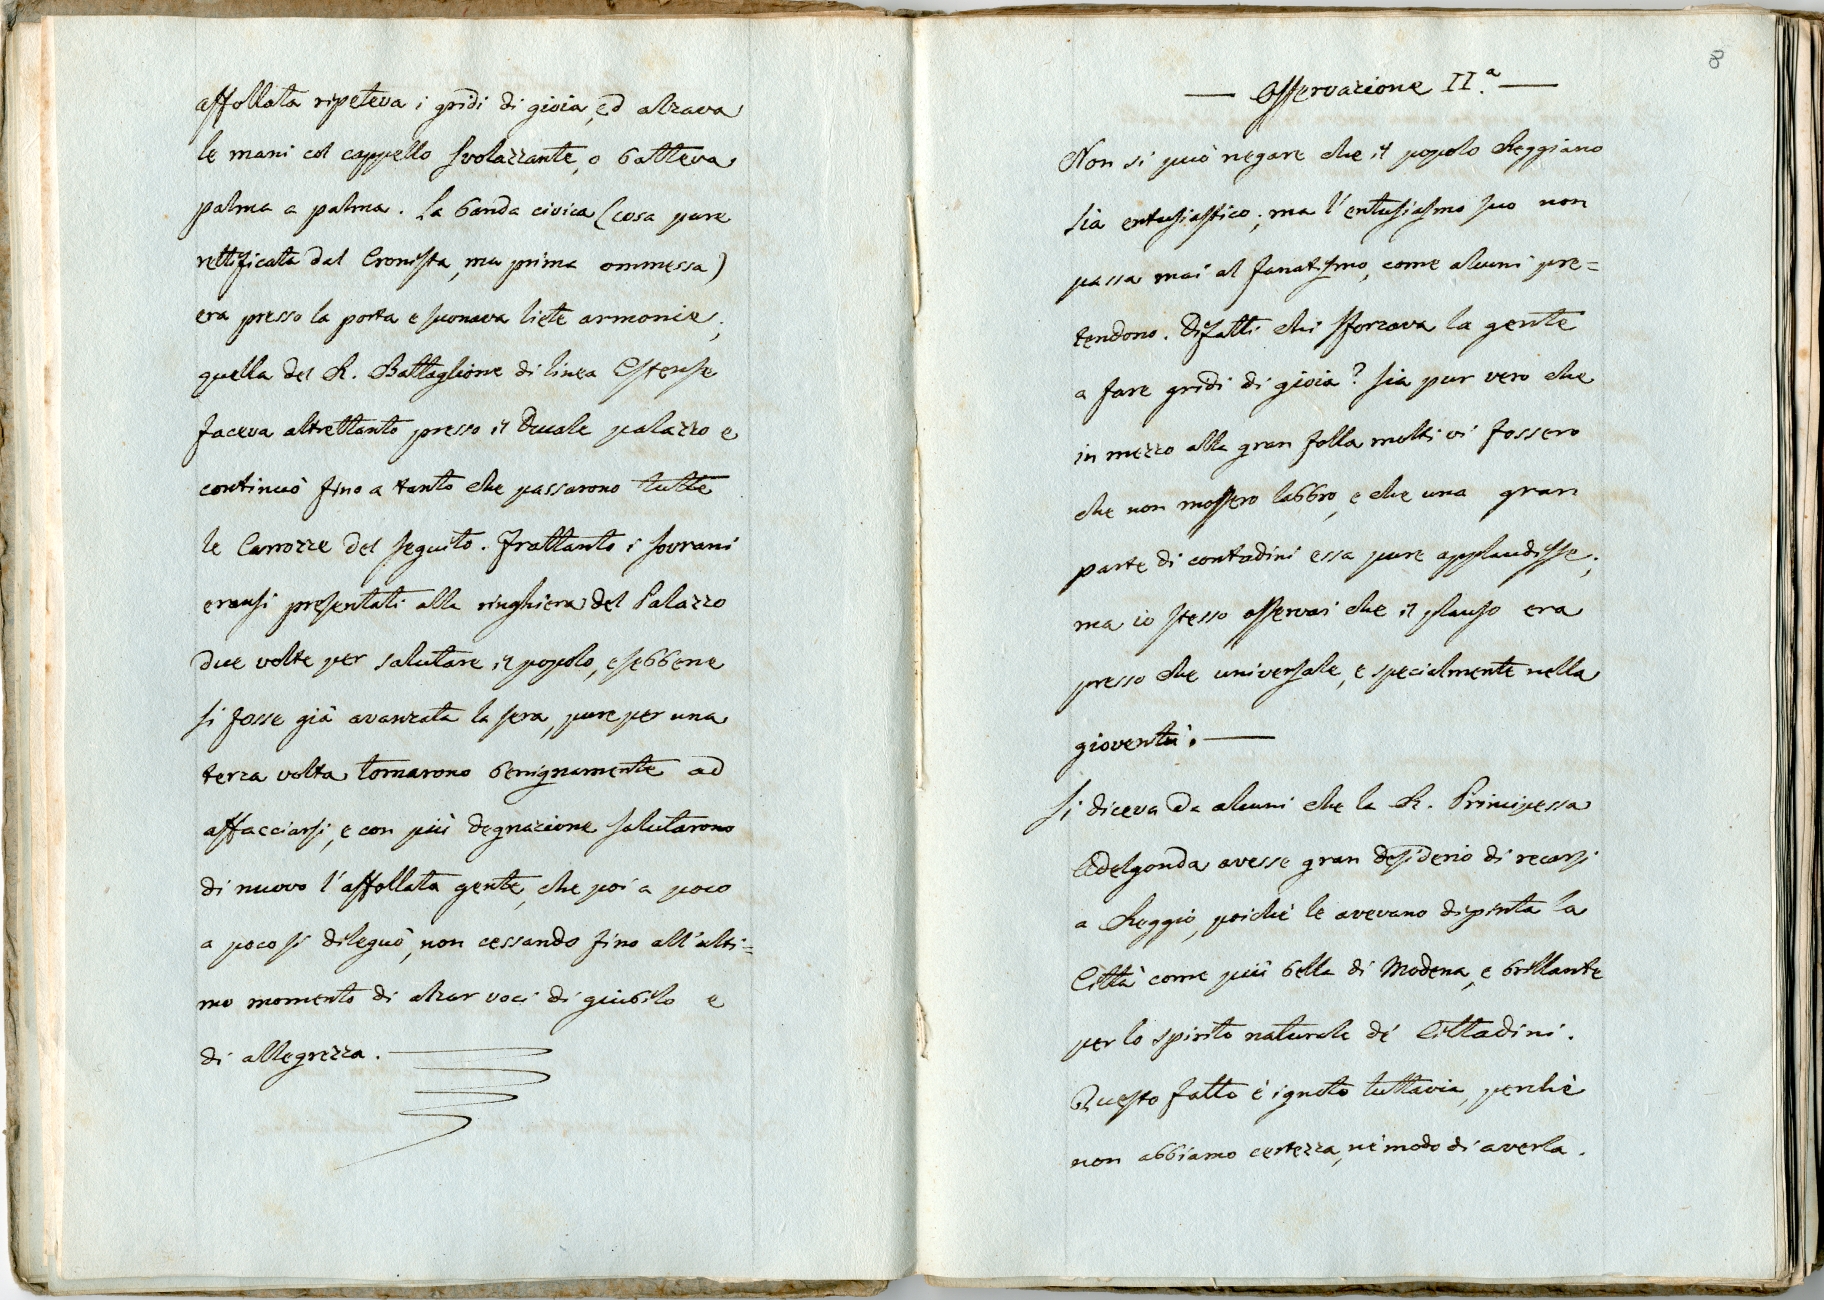 affollata ripeteva i gridi di gioia, ed alzava
le mani col cappello svolazzante, o batteva
palma a palma. La banda civica (cosa pure
rettificata dal Cronista, ma prima ommessa)
era presso la porta e suonava liete armonie;
quella del R. Battaglione di linea Estense
faceva altrettanto presso il Ducale palazzo e
continuò fino a tanto che passarono tutte
le Carrozze del seguito. Frattanto i sovrani
eransi presentati alla ringhiera del Palazzo
due volte per salutare il popolo, e sebbene
si fosse già avanzata la sera, pure per una
terza volta tornarono benignamente ad
affacciarsi, e con più degnazione salutarono
di nuovo l'affollata gente, che poi a poco
a poco si dileguò, non cessando fino all'ulti=
mo momento di alzar voci di giubilo e
di allegrezza.
8
— Osservazione II.ª —
Non si può negare che il popolo Reggiano
sia entusiastico; ma l'entusiasmo suo non
passa mai al fanatismo, come alcuni pre=
tendono. Difatti chi sforzava la gente
a fare gridi di gioia? Sia pur vero che
in mezzo alla gran folla molti vi fossero
che non mossero labbro, e che una gran
parte di contadini essa pure applaudisse;
ma io stesso osservai che il plauso era
presso che universale, e specialmente nella
gioventù. —
Si diceva da alcuni che la R. Principessa
Adelgonda avesse gran desiderio di recarsi
a Reggio, poichè le avevano dipinta la
Città come più bella di Modena, e brillante
per lo spirito naturale de' Cittadini.
Questo fatto è ignoto tuttavia, perchè
non abbiamo certezza, nè modo di averla.